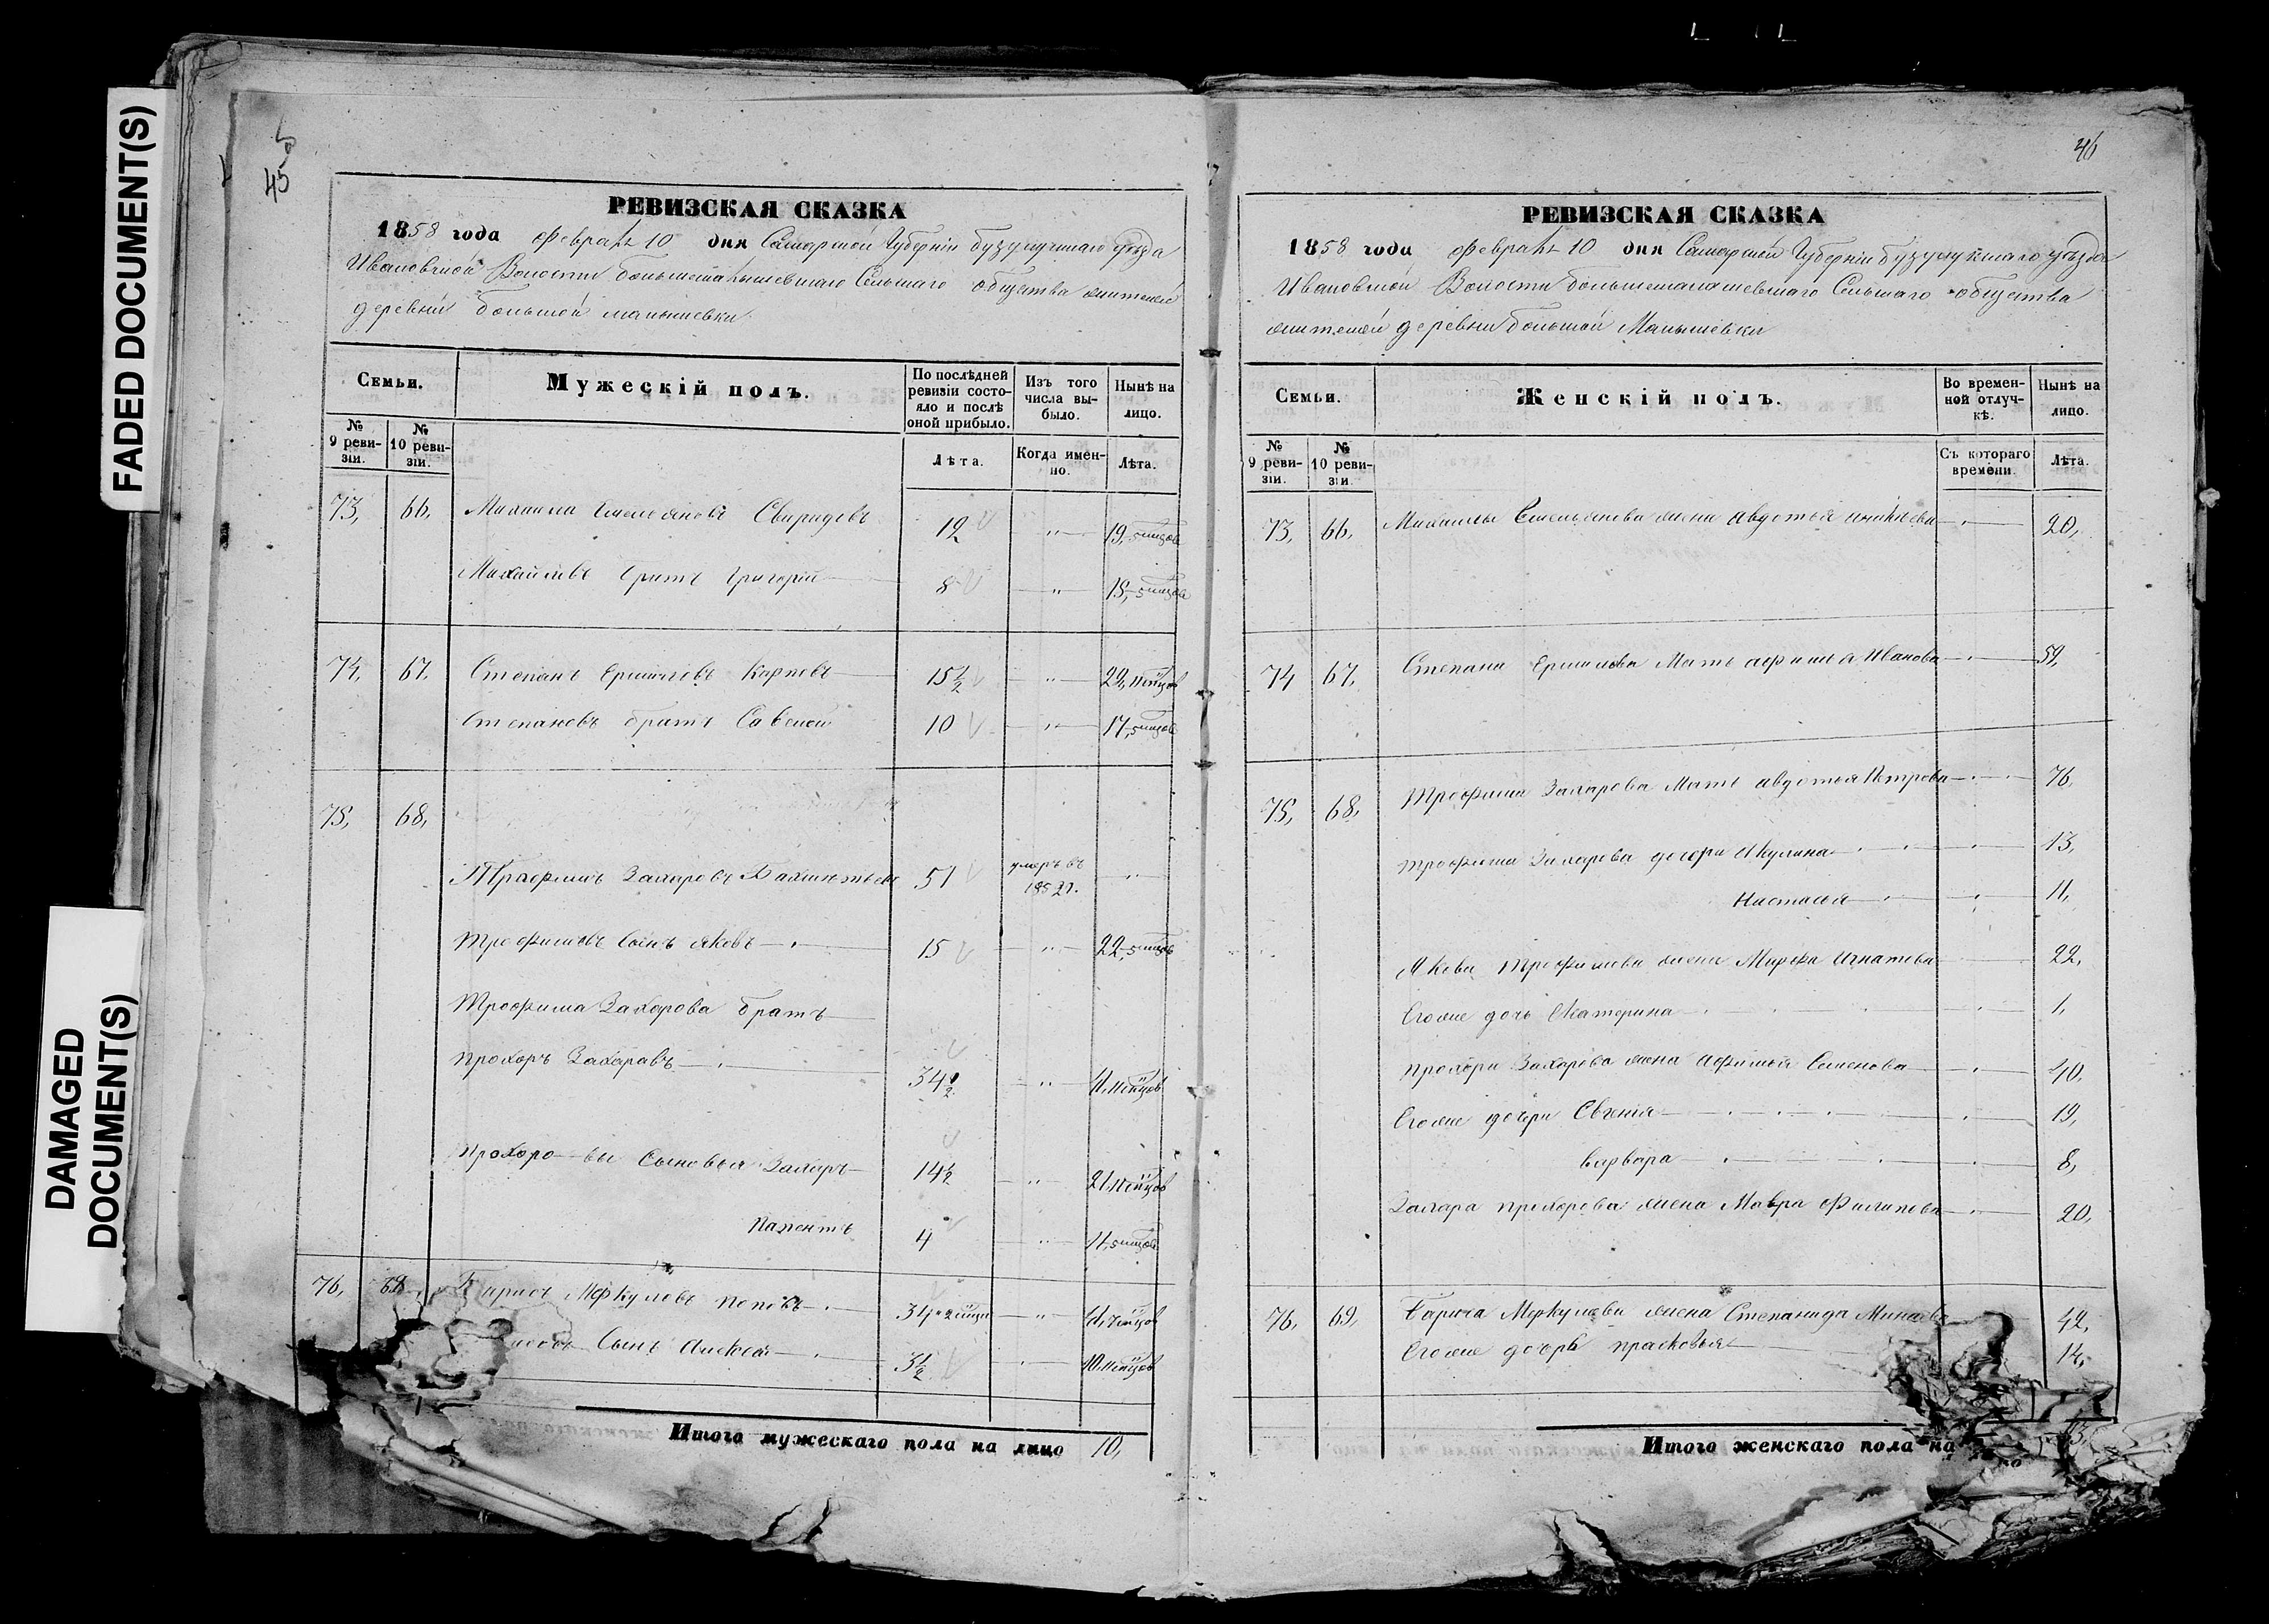 FADED DOCUMENT(S)
DAMAGED
DOCUMENT(S)
45
РЕВИЗСКАЯ СКАЗКА
1858 года февраля 10 дня Самарской Губерніи бузулукскаго уѣзда
Ивановской Волости большемалышевскаго Сельскаго общества жителей
деревни большой малышевки
Семьи.
Мужескій полъ.
По послѣдней ревизіи состояло и послѣ оной прибыло.
Изъ того числа выбыло.
Нынѣ на лицо.
№ 9 ревизіи.
№ 10 ревизіи.
Лѣта.
Когда именно.
Лѣта.
73, 66, Михаила Емельяновъ Свиридовъ 19, 5 мцов
Михайловъ братъ Григорій 8 " 15, 5 мцов
74, 67, Степанъ Ермиловъ Карповъ 15½ " 22, 11 мцов
Степановъ братъ Савелой 10 " 17, 5 мцов
75, 68,
Трафимъ Захаровъ 51 умеръ въ 1852 г. "
Трофимовъ Сынъ Яковъ 15 " 22, 5 мцов
Трофима Захарова братъ
прохоръ Захаравъ 34½ " 41, 11 мцов
прохоровы Сыновья Захаръ 14½ " 21, 11 мцов
4 " 11, 5 мцов
76, Меркуловъ поповъ 34 "
Сынъ Алексей 3½ 10, 11 мцов
Итого мужескаго пола на лицо 10,
46
РЕВИЗСКАЯ СКАЗКА
1858 года февраля 10 дня Самарской Губерніи бузулукскаго уѣзда
Ивановской Волости большемалашевскаго Сельскаго общества
жителей деревни большой Малышевки
Семьи.
Женскій полъ.
Во временной отлучкѣ.
Нынѣ на лицо.
№ 9 ревизіи.
№ 10 ревизіи.
Съ котораго времени.
Лѣта.
73, 66, Михаилы Емельянова жена авдотья 20,
74 67, Степана Ермилова Мать Иванова 59,
75, 68, Трофима Захарова Мать авдотья Петрова 76
трофима Захарова дочери Акулина 13,
Настасья 11,
Якова трофимова жена Марфа Игнатева 22,
Егоже дочь Екатерина 1,
прохора Захарова жена Афимья Семенова 40,
Егоже дочери Евгенія 19,
варвара 8,
Захара прохорова жена Мавра Филипова 20,
76, 69, Барича Меркулова жена Степанида Минаева 42,
Егоже дочрь прасковья 14,
Итого женскаго пола на